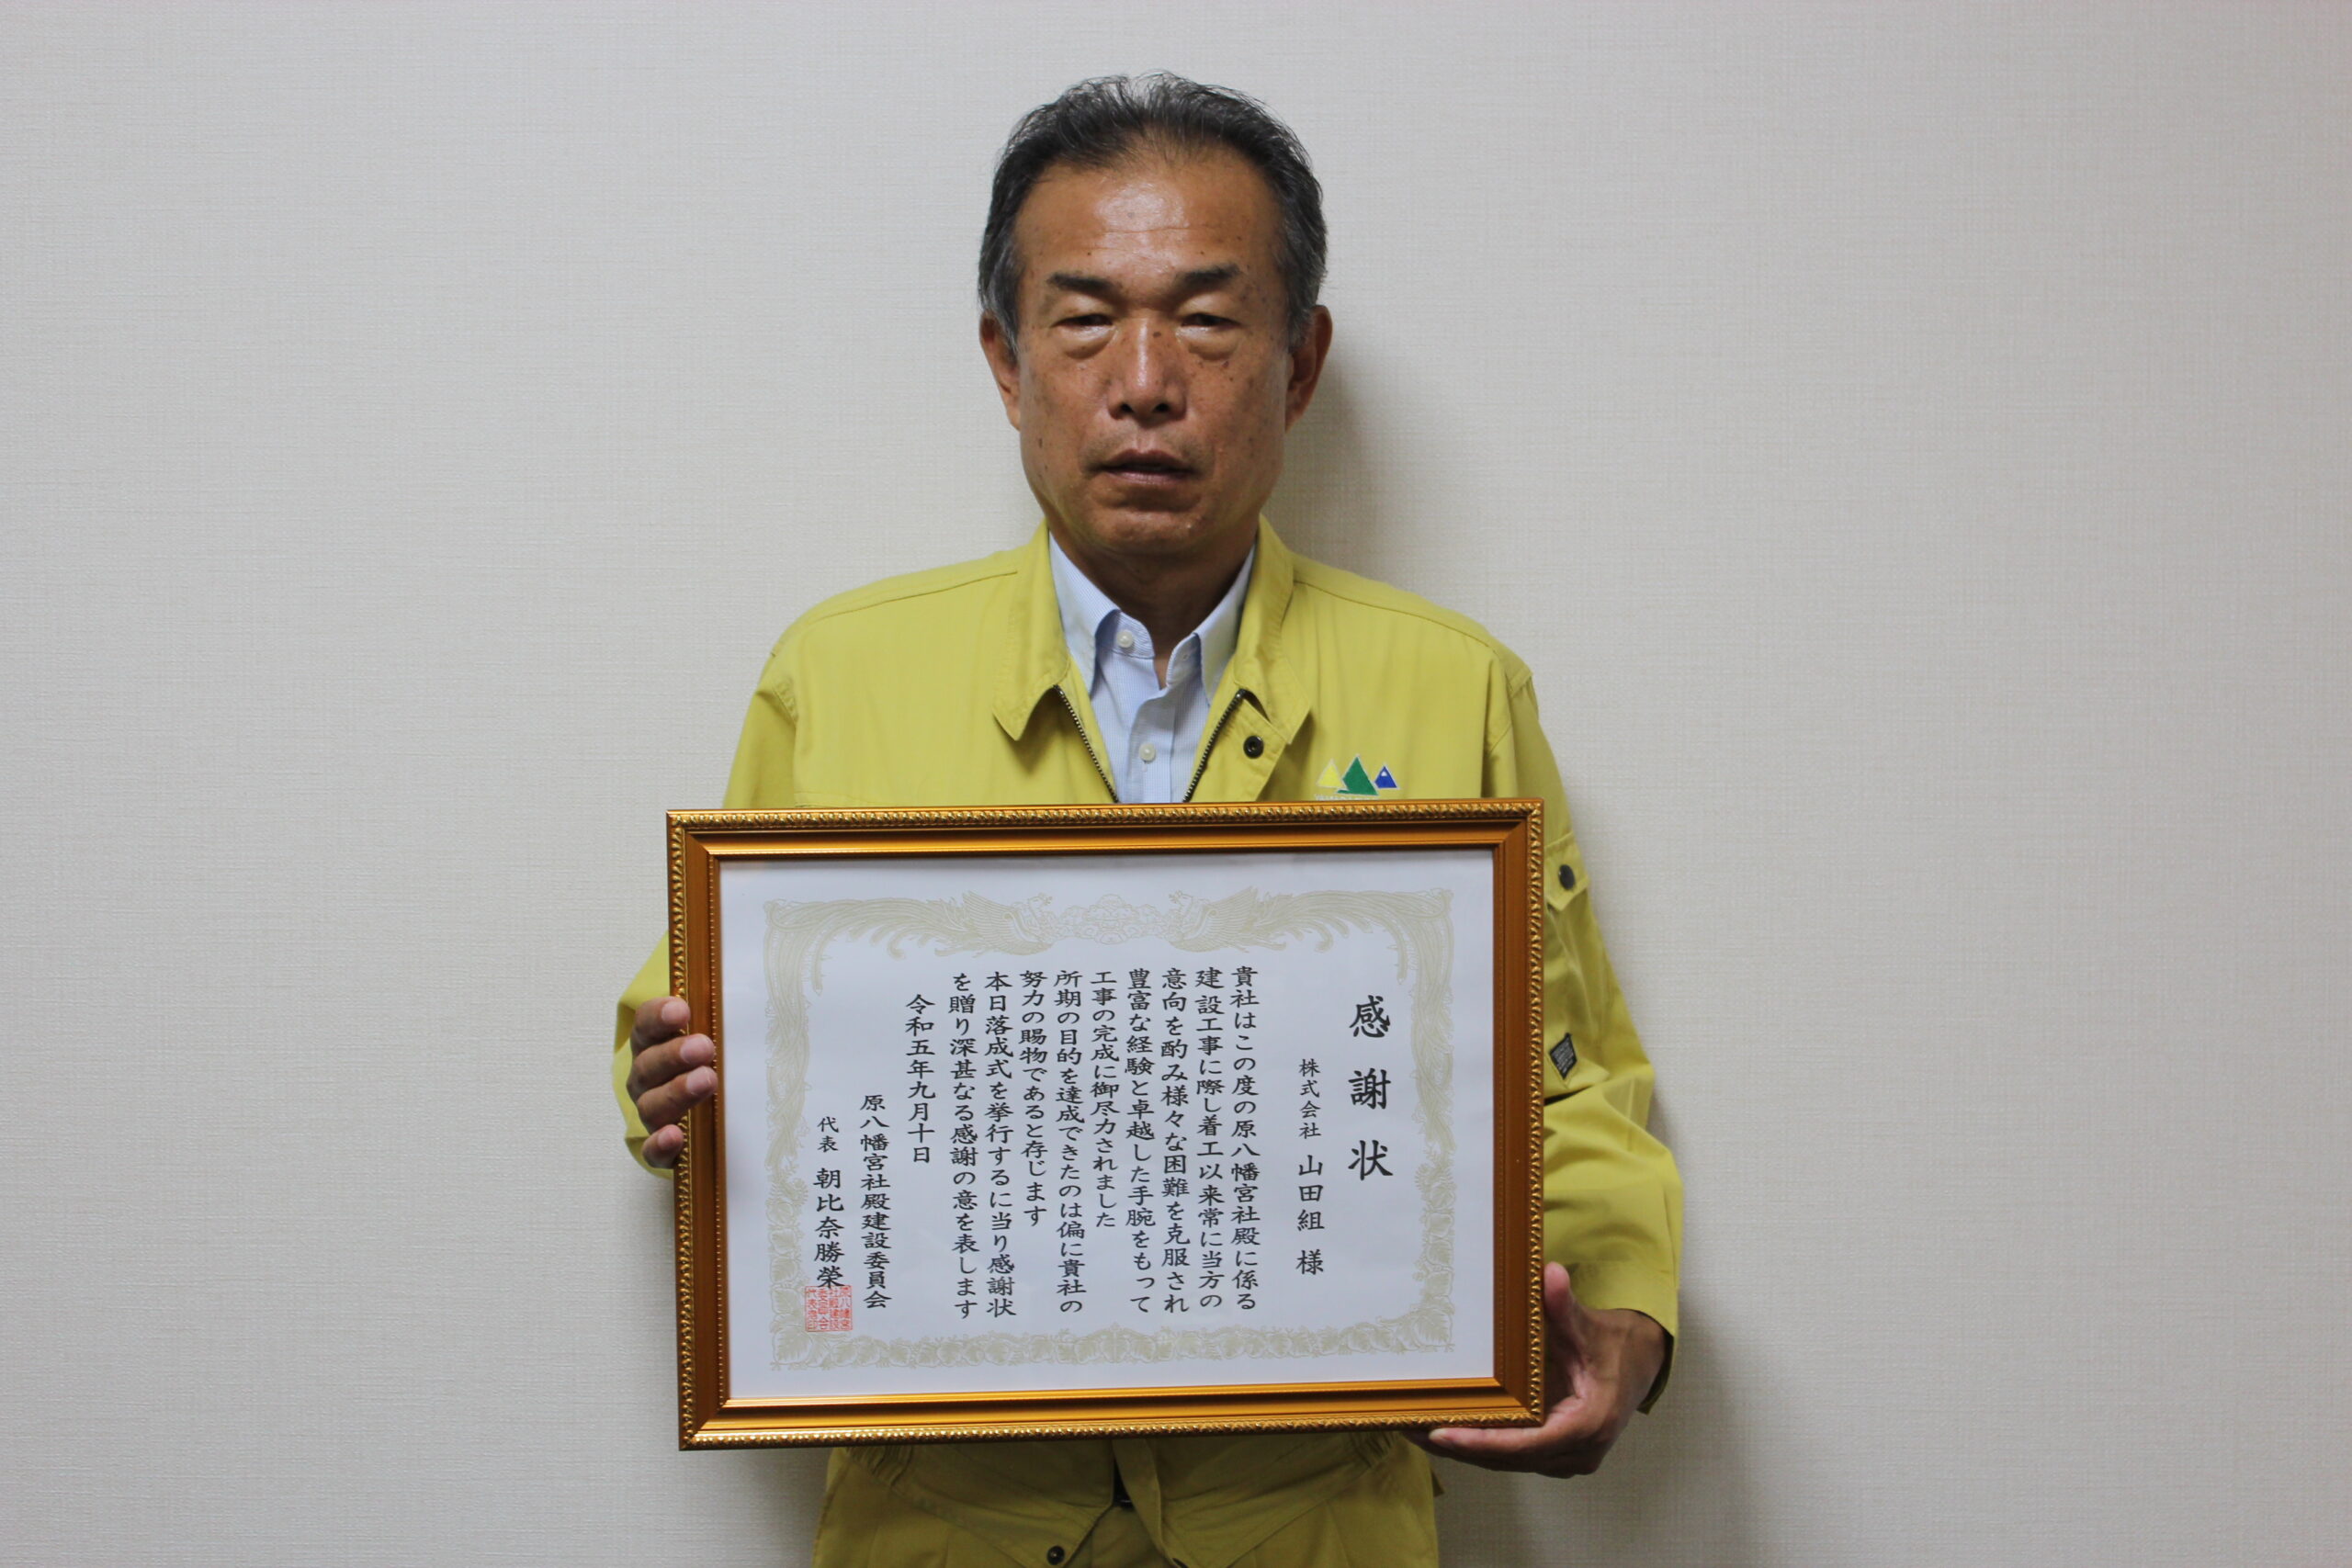 感謝状
株式会社 山田組 様
貴社はこの度の原八幡宮社殿に係る
建設工事に際し着工以来常に当方の
意向を酌み様々な困難を克服され
豊富な経験と卓越した手腕をもって
工事の完成に御尽力されました
所期の目的を達成できたのは偏に貴社の
努力の賜物であると存じます
本日落成式を挙行するに当り感謝状
を贈り深甚なる感謝の意を表します
令和五年九月十日
原八幡宮社殿建設委員会
代表 朝比奈勝榮